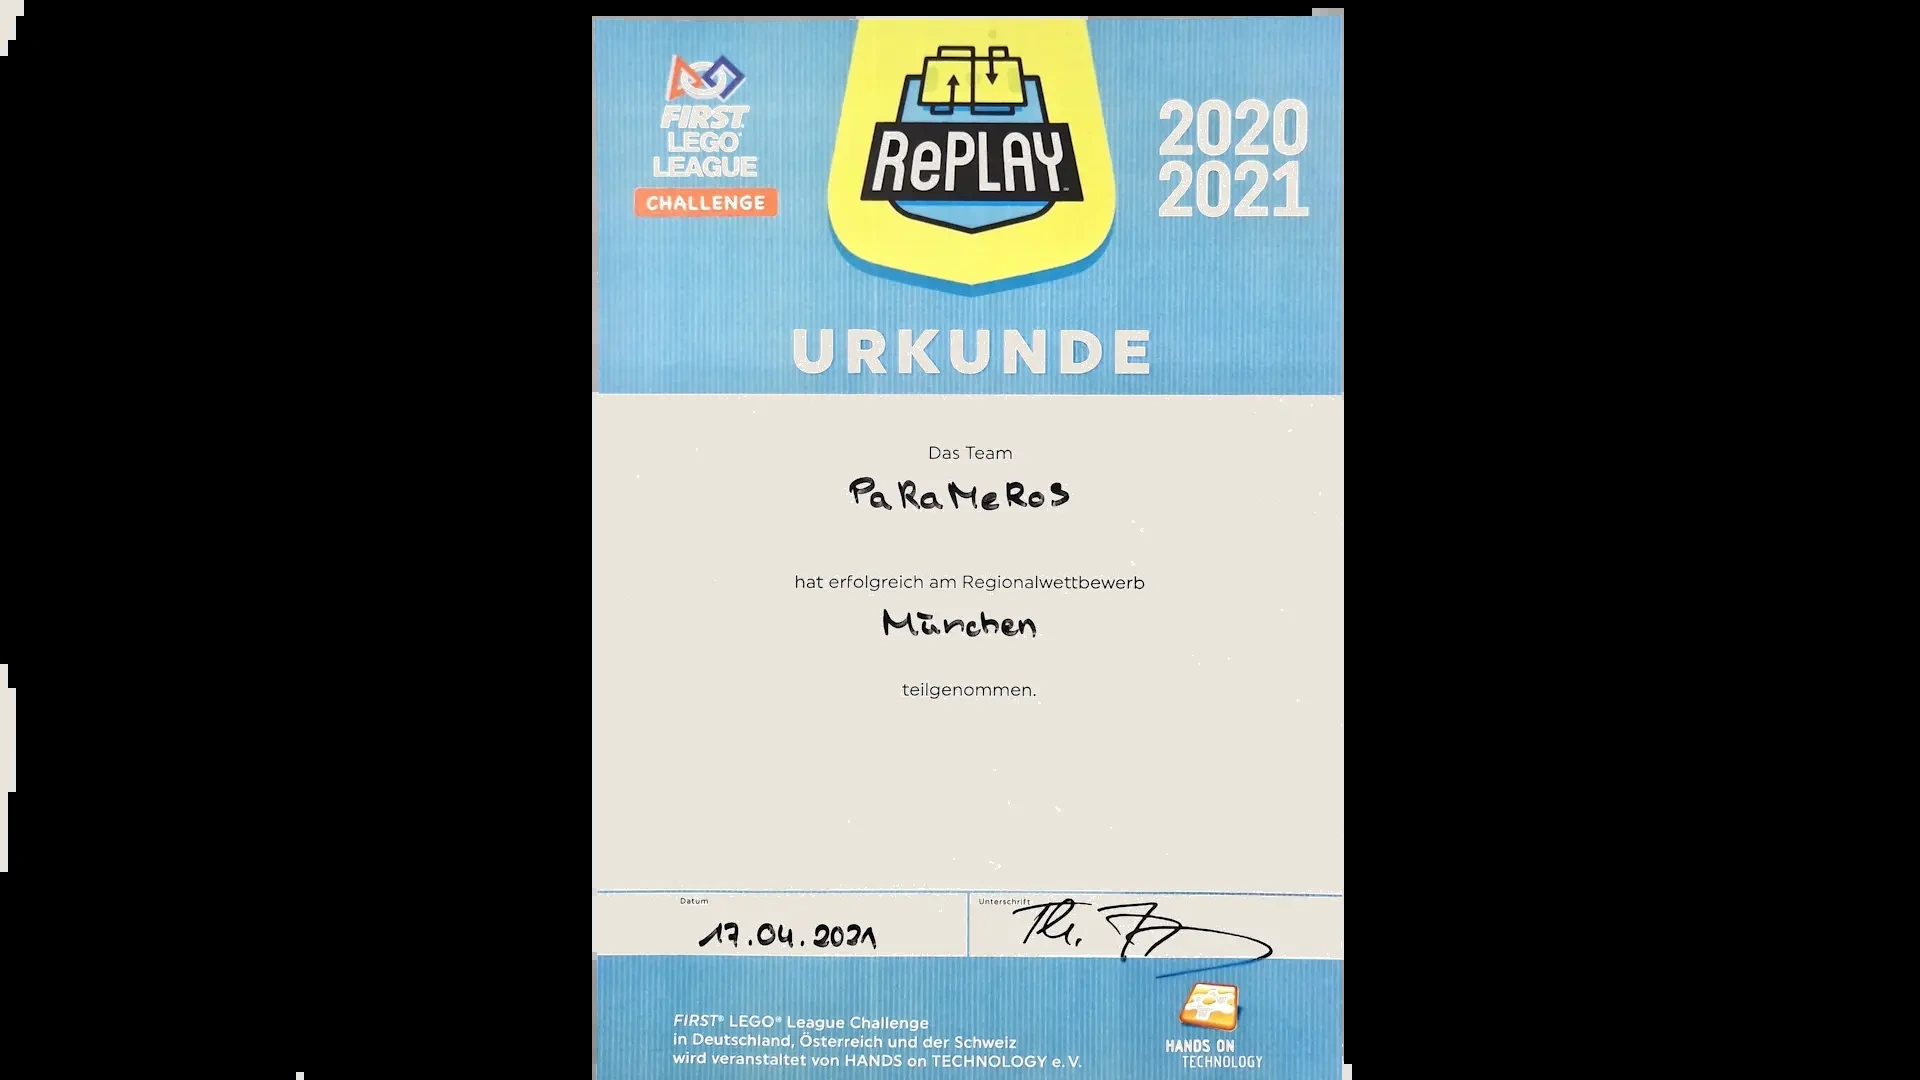 FIRST
LEGO
LEAGUE
CHALLENGE
RePLAY
2020
2021
URKUNDE
Das Team
PaRaMeRoS
hat erfolgreich am Regionalwettbewerb
München
teilgenommen.
Datum
17.04.2021
Unterschrift
FIRST® LEGO® League Challenge
in Deutschland, Österreich und der Schweiz
wird veranstaltet von HANDS on TECHNOLOGY e. V.
HANDS ON
TECHNOLOGY